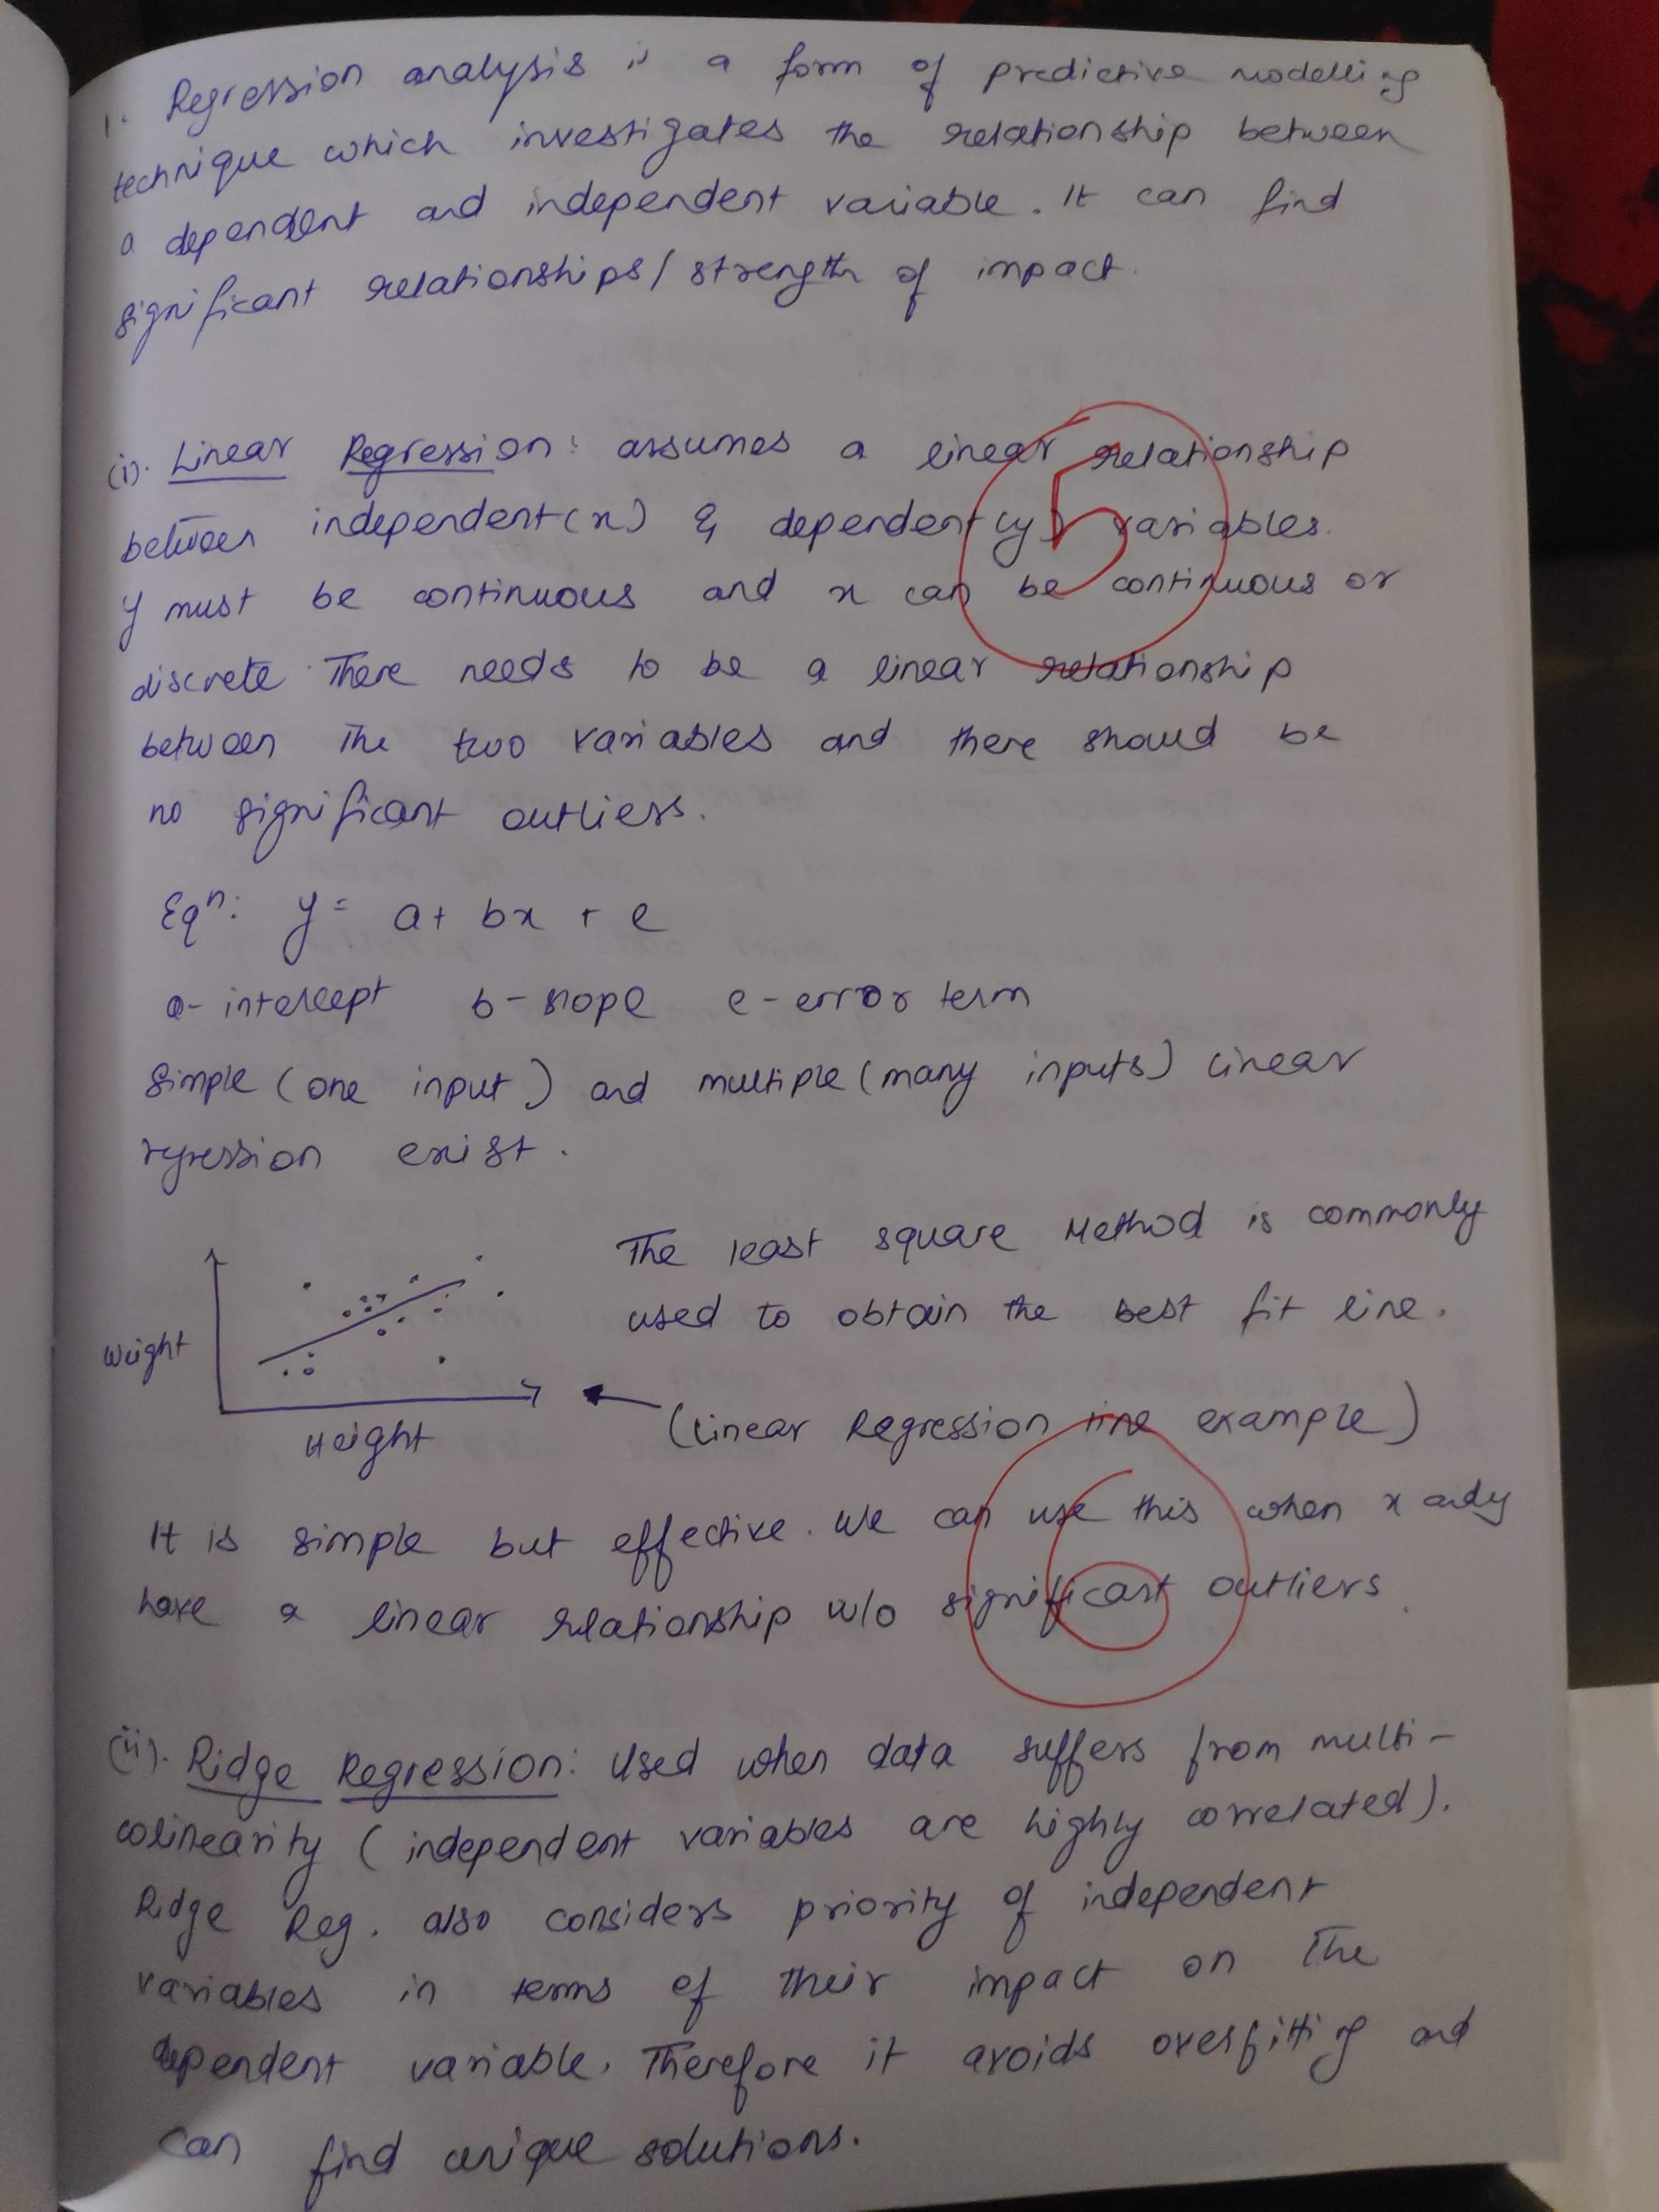 1. Regression analysis is a form of predictive modelling
technique which investigates the relationship between
a dependent and independent variable. It can find
significant relationships/strength of impact.
(i). Linear Regression: assumes a linear relationship
5
between independent(x) & dependent(y) variables.
y must be continuous and x can be continuous or
discrete. There needs to be a linear relationship
between the two variables and there should be
no significant outliers.
Eqⁿ: y = a + bx + e
a- intercept b- slope e- error term
Simple (one input) and multiple (many inputs) linear
regression exist.
The least square Method is commonly
used to obtain the best fit line.
Weight
Height
(Linear Regression line example)
6
It is simple but effective. We can use this when x and y
have a linear relationship w/o significant outliers.
(ii). Ridge Regression: Used when data suffers from multi-
colinearity (independent variables are highly correlated).
Ridge Reg. also considers priority of independent
variables in terms of their impact on the
dependent variable. Therefore it avoids overfitting and
can find unique solutions.